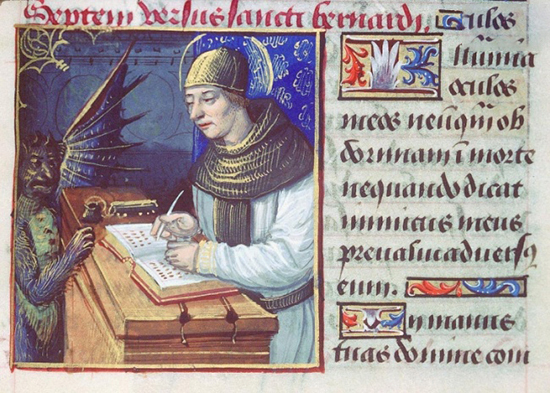 Septem versus sancti bernardi. Oculos
Illumina
oculos
meos neūq̄m ob
dormiam ī morte
nequando dicat
inimicus meus
preualui aduersꝰ
eum.
In manus
tuas domine com